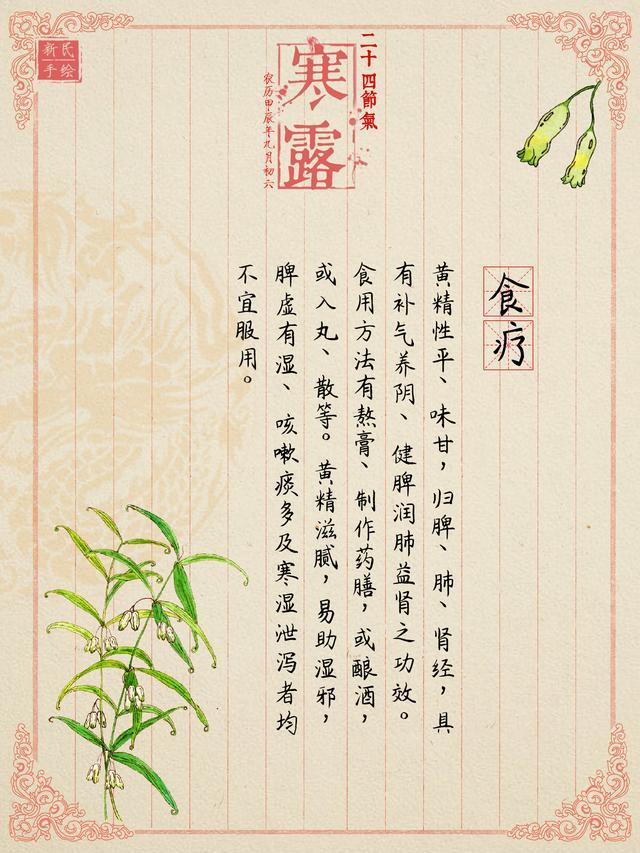 新民
手绘
二十四節氣
寒露
农历甲辰年九月初六
食疗
黄精性平、味甘，归脾、肺、肾经，具
有补气养阴、健脾润肺益肾之功效。
食用方法有熬膏、制作药膳，或酿酒，
或入丸、散等。黄精滋腻，易助湿邪，
脾虚有湿、咳嗽痰多及寒湿泄泻者均
不宜服用。